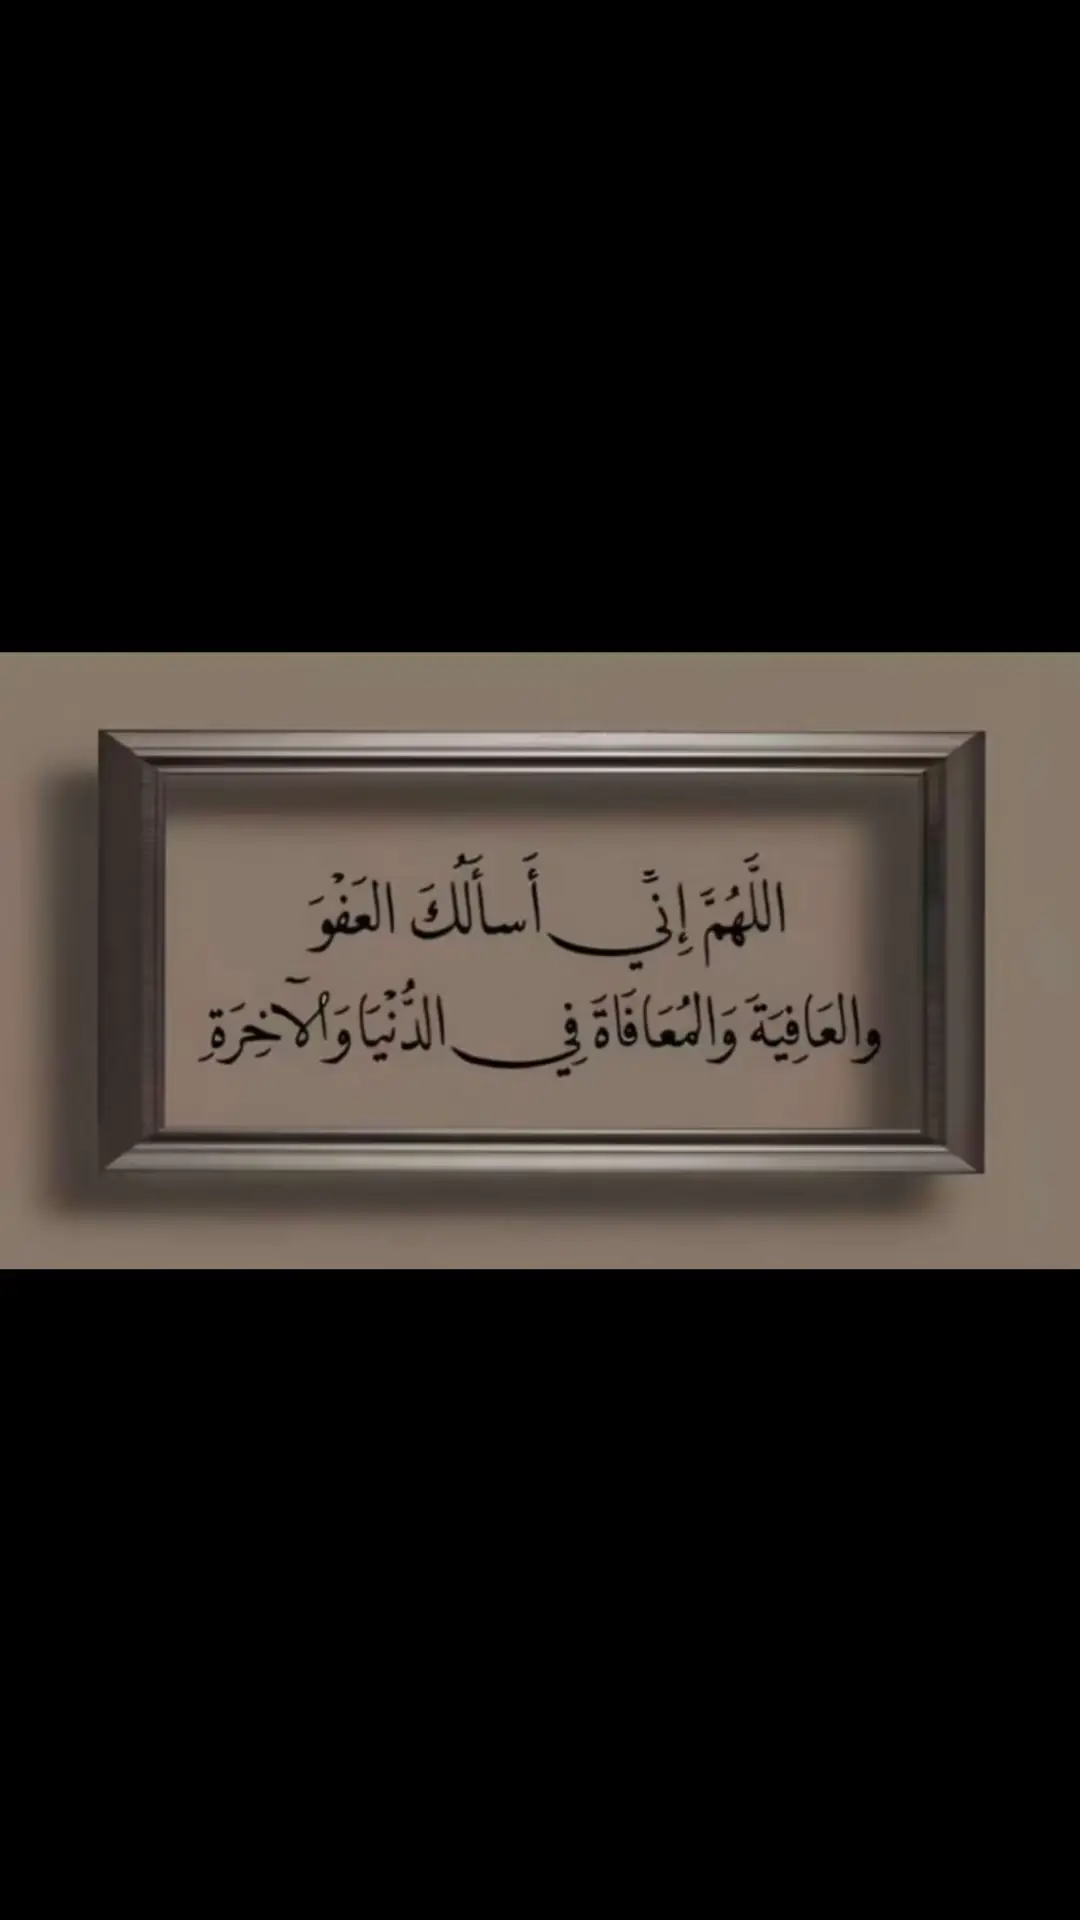 اللَّهُمَّ إِنِّي أَسأَلُكَ العَفْوَ
والعَافِيَةَ وَالمُعَافَاةَ فِي الدُّنْيَا وَالآخِرَةِ